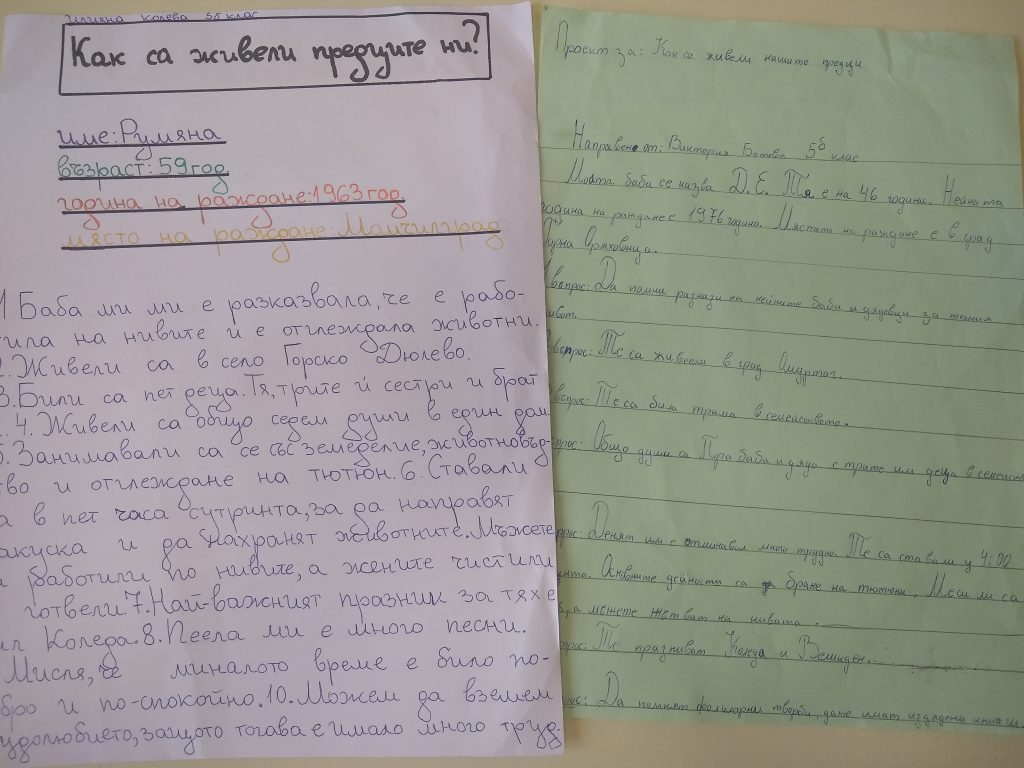 Илияна Колева 5б клас
Как са живели предците ни?
име: Румяна
възраст: 59 год.
година на раждане: 1963 год.
място на раждане: Момчилград
1. Баба ми ми е разказвала, че е рабо-
тила на нивите и е отглеждала животни.
2. Живели са в село Горско Дюлево.
3. Били са пет деца. Тя, трите ѝ сестри и брат
4. Живели са общо седем души в един дом
5. Занимавали са се със земеделие, животновъд-
во и отглеждане на тютюн. 6. Ставали
а в пет часа сутринта, за да направят
акуска и да нахранят животните. Мъжете
а работили по нивите, а жените чистили
готвели 7. Най-важният празник за тях е
ил Коледа. 8. Пеела ми е много песни.
Мисля, че миналото време е било по-
бро и по-спокойно. 10. Можем да вземем
удолюбието, защото тогава е имало много труд-
Проект за: Как са живели нашите предци
Направен от: Виктория Ботева 5б клас
Моята баба се казва Д. Е. Тя е на 46 години. Нейната
година на раждане е 1976 година. Мястото на раждане е в град
Горна Оряховица.
въпрос: Да помни разкази на нейните баби и дядовци за техния
живот.
въпрос: Те са живели в град Омуртаг.
въпрос: Те са били трима в семейството.
прос: Общо души са Пра баба и дядо с трите им деца в семейств
прос: Денят им е отминавал много трудно. Те са ставали у 4:00
инта. Основните дейности са бране на тютюн. Меси ли са
, а мъжете жътват на нивата.
прос: Те празнуват Коледа и Великден.
рос: Да помнят фолклорни творби даже имат издадени книги